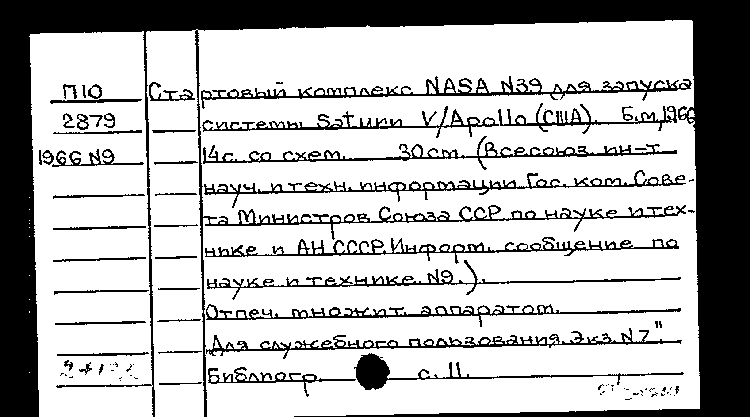 П10 Стартовый комплекс NASA N39 для запуска
2879 системы Saturn V/Apollo (США). Б.м, 1966
1966 N9 14с. со схем. 30cm. (Всесоюз. ин-т
науч. и техн. информации Гос. ком. Сове-
та Министров Союза ССР по науке и тех-
нике и АН СССР. Информ. сообщение по
науке и технике. N9.).
Отпеч. множит. аппаратом.
"Для служебного пользования. Экз. N7".
Библиогр. с. 11.